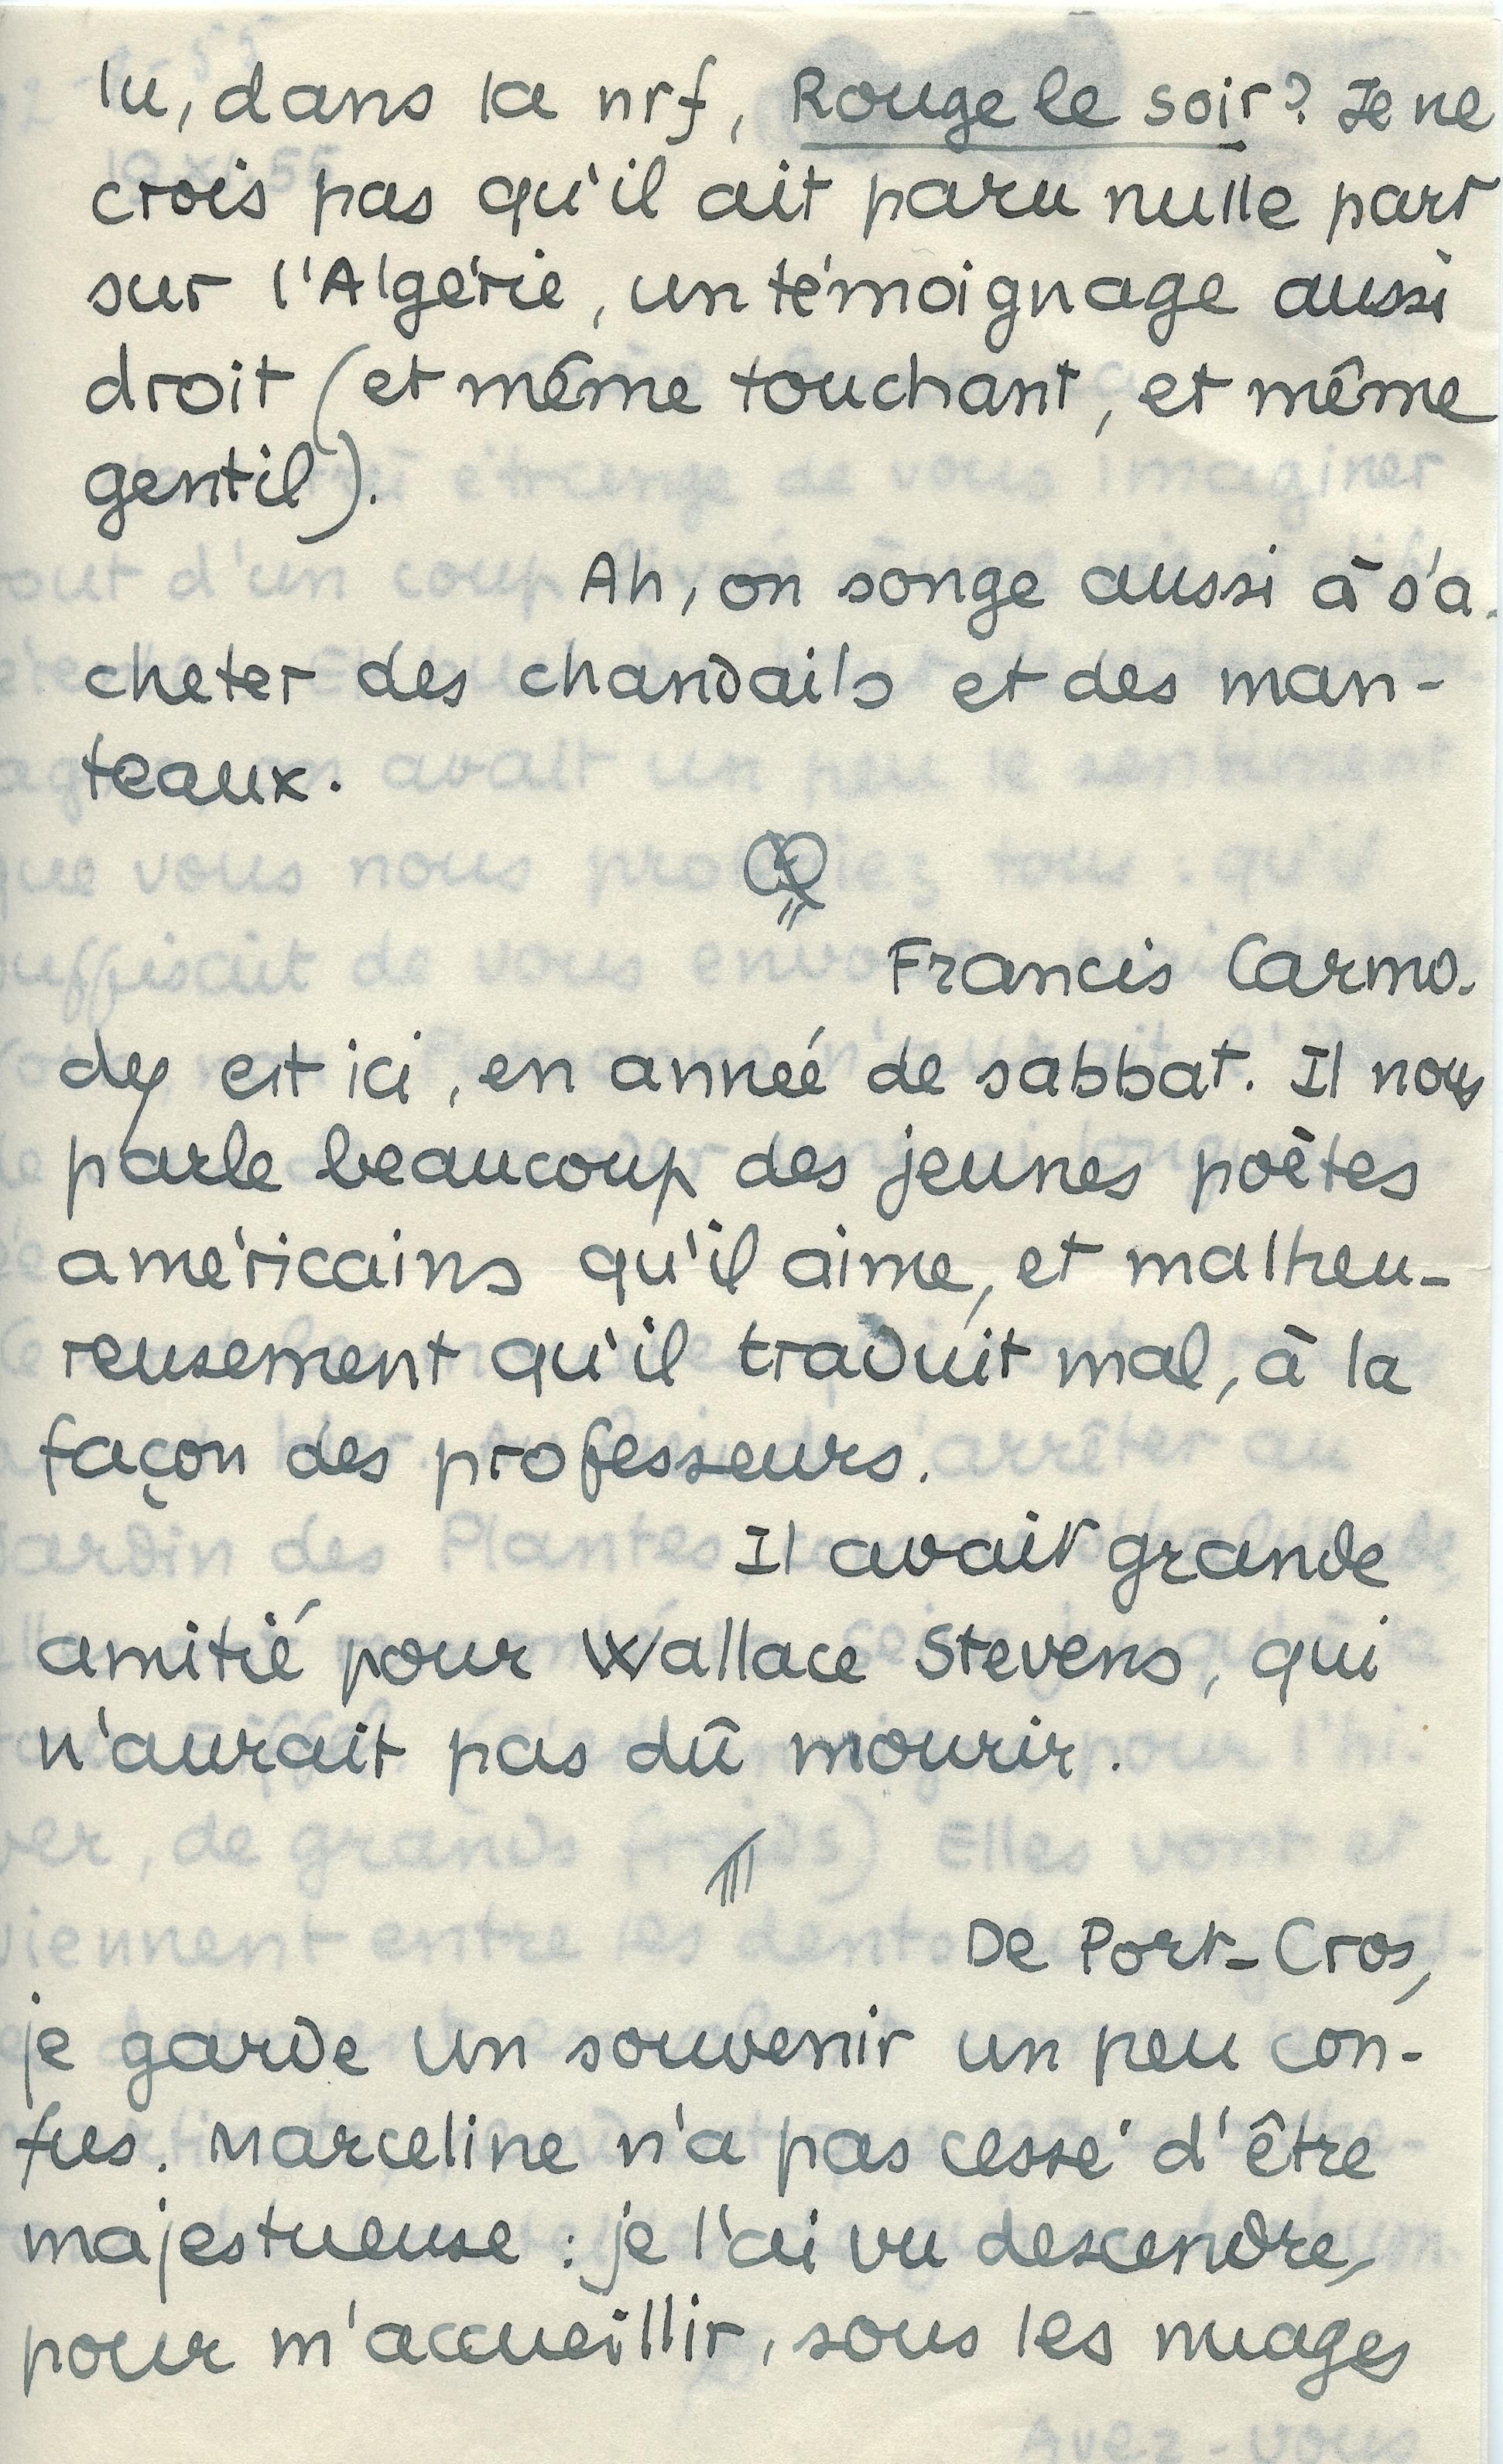 lu, dans la nrf, Rouge le soir? Je ne
crois pas qu'il ait paru nulle part
sur l'Algérie, un témoignage aussi
droit (et même touchant, et même
gentil).
Ah, on songe aussi à s'a-
cheter des chandails et des man-
teaux.
Francis Carmo-
dy est ici, en année de sabbat. Il nous
parle beaucoup des jeunes poètes
américains qu'il aime, et malheu-
reusement qu'il traduit mal, à la
façon des professeurs.
Il avait grande
amitié pour Wallace Stevens, qui
n'aurait pas dû mourir.
De Port-Cros,
je garde un souvenir un peu con-
fus. Marceline n'a pas cessé d'être
majestueuse : je l'ai vu descendre,
pour m'accueillir, sous les nuages